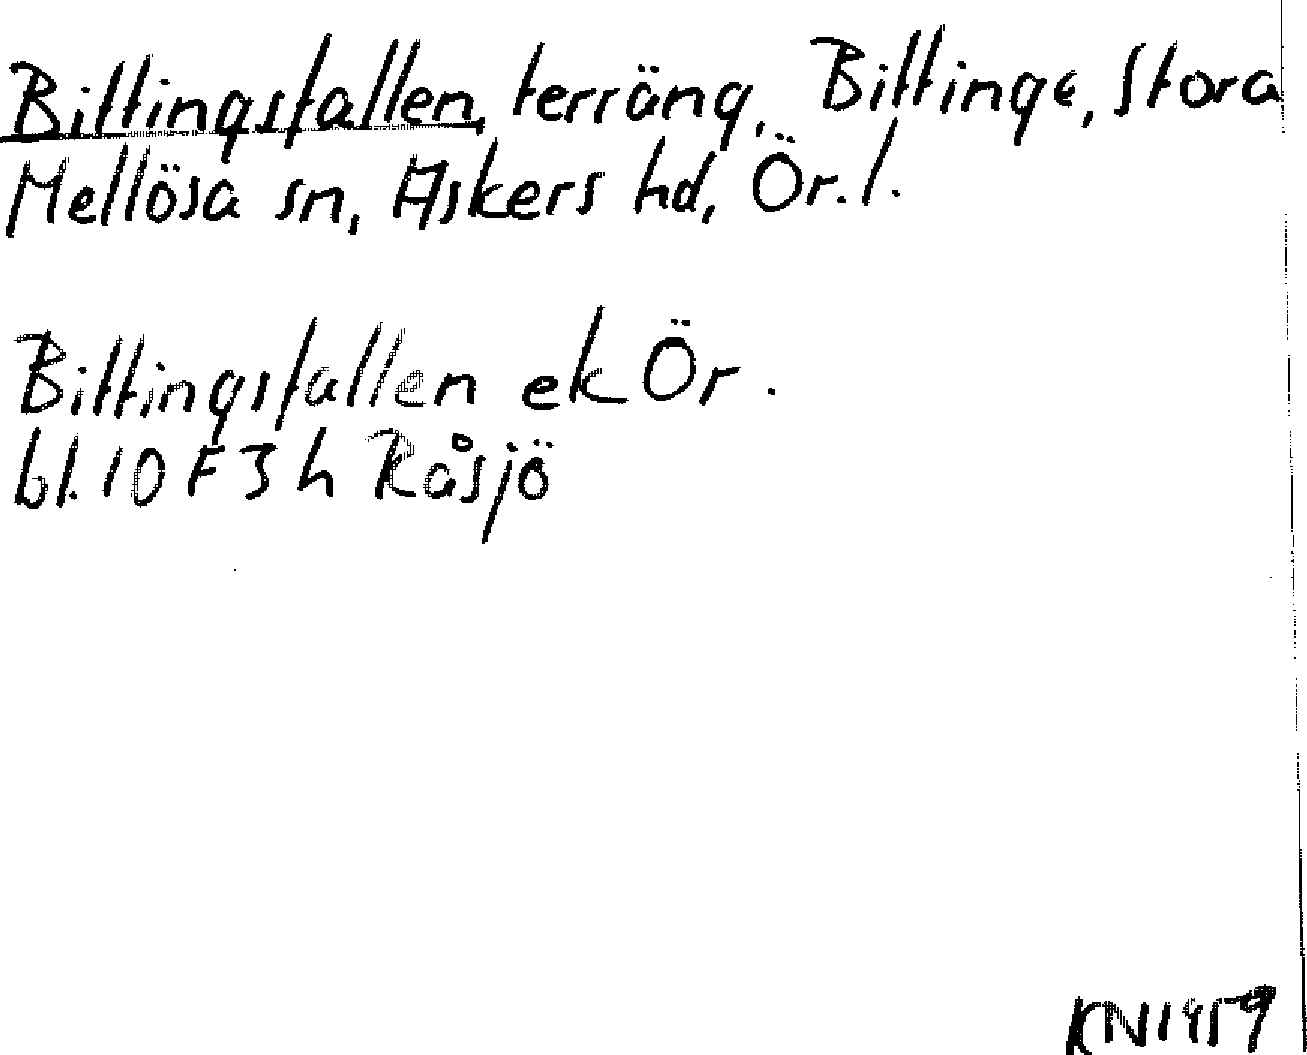 Bittingstallen, terräng, Bittinge, Stora
Mellösa sn, Askers hd, Ör. l.
Bittingstallen ek Ör.
bl. 10 F 3 h Råsjö
KN 1959